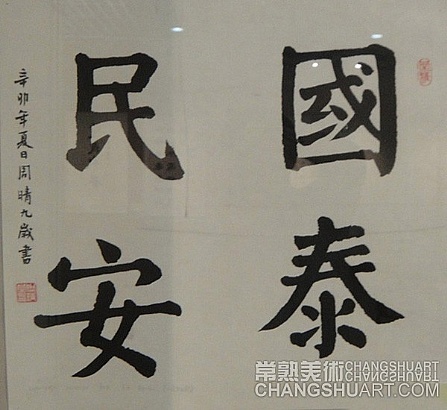 國泰
民安
辛卯年夏日周晴九歲書
常熟美術CHANGSHUART
CHANGSHUART.COM